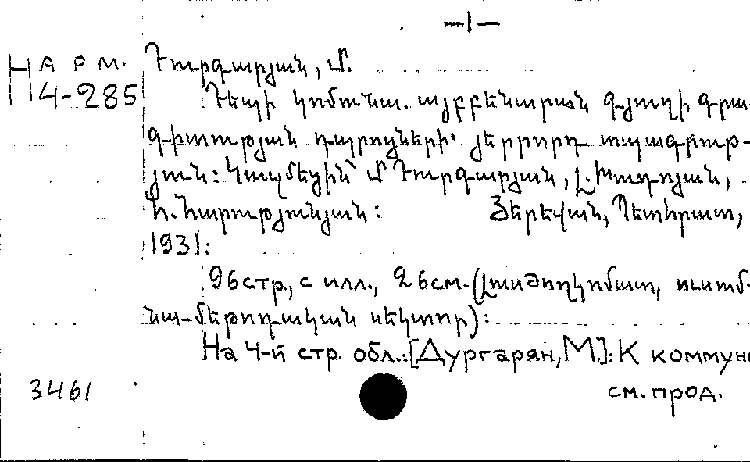 —1—
Н А Р М. Դուրգարյան, Մ.
Н 4-285 Դեպի կոմունա. այբբենարան գյուղի գրա-
գիտության դպրոցների. յերրորդ տպագրութ-
յուն: Կազմեցին՝ Մ. Դուրգարյան, Լ. Խաչոյան,
Հ. Հարությունյան: Յերեվան, Պետհրատ,
1931:
96стр., с илл., 26см. (Լուսժողկոմատ, ուսում-
նա-մեթոդական սեկտոր):
На 4-й стр. обл.: [Дургарян, М]: К коммун
3461 см. прод.